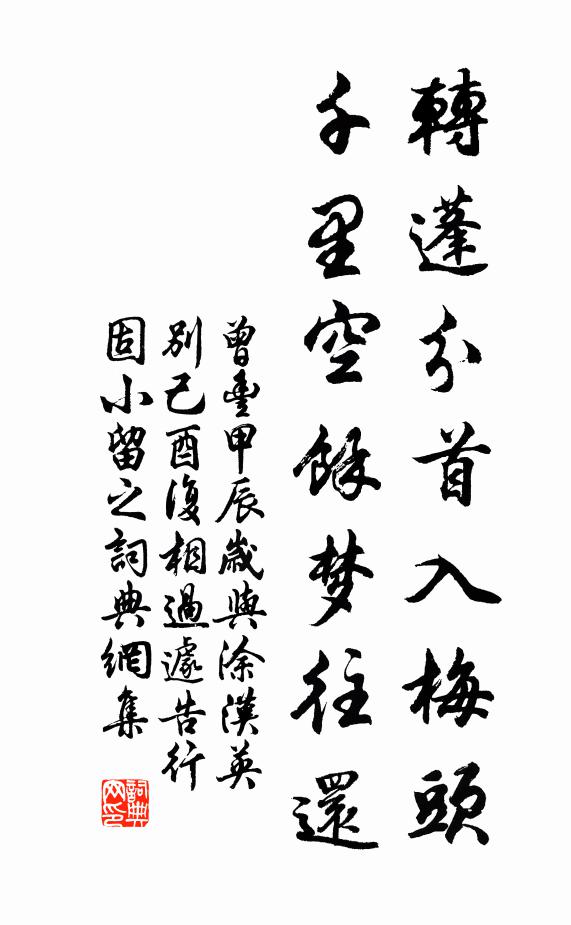 轉蓬分首入梅頭
千里空餘梦往還
曾豐甲辰歲與涂漢英
別己酉復相過遽告行
固小留之詞典網集
詞典网印